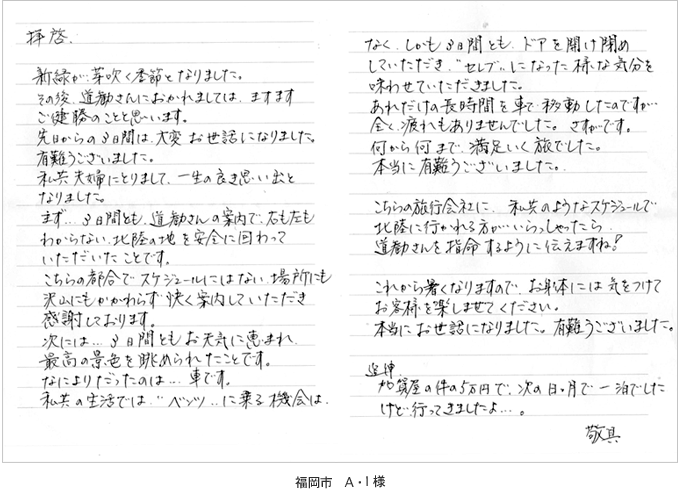 拝啓、
新緑が芽吹く季節となりました。
その後、道勧さんにおかれましては、ますます
ご健勝のことと思います。
先日からの3日間は、大変お世話になりました。
有難うございました。
私共夫婦にとりまして、一生の良き思い出と
なりました。
まず…3日間とも、道勧さんの案内で、右も左も
わからない、北陸の地を安全に回わって
いただいたことです。
こちらの都合でスケジュールにはない場所にも
沢山にもかかわらず快く案内していただき
感謝しております。
次には…3日間ともお天気に恵まれ、
最高の景色を眺められたことです。
なによりだったのは…車です。
私共の生活では、"ベンツ"に乗る機会は、
なく、しかも3日間とも、ドアを開け閉め
していただき、"セレブ"になった様な気分を
味わせていただきました。
あれだけの長時間を車で移動したのですが…
全く疲れもありませんでした。さすがです。
何から何まで、満足いく旅でした。
本当に有難うございました。
こちらの旅行会社に、私共のようなスケジュールで
北陸に行かれる方がいらっしゃったら、
道勧さんを指命するように伝えますね!
これから暑くなりますので、お身体には気をつけて
お客様を楽しませてください。
本当にお世話になりました。有難うございました。
追伸
加賀屋の件の5万円で、次の日、月で一泊でした
けど行ってきましたよ…。
敬具
福岡市　A・I 様